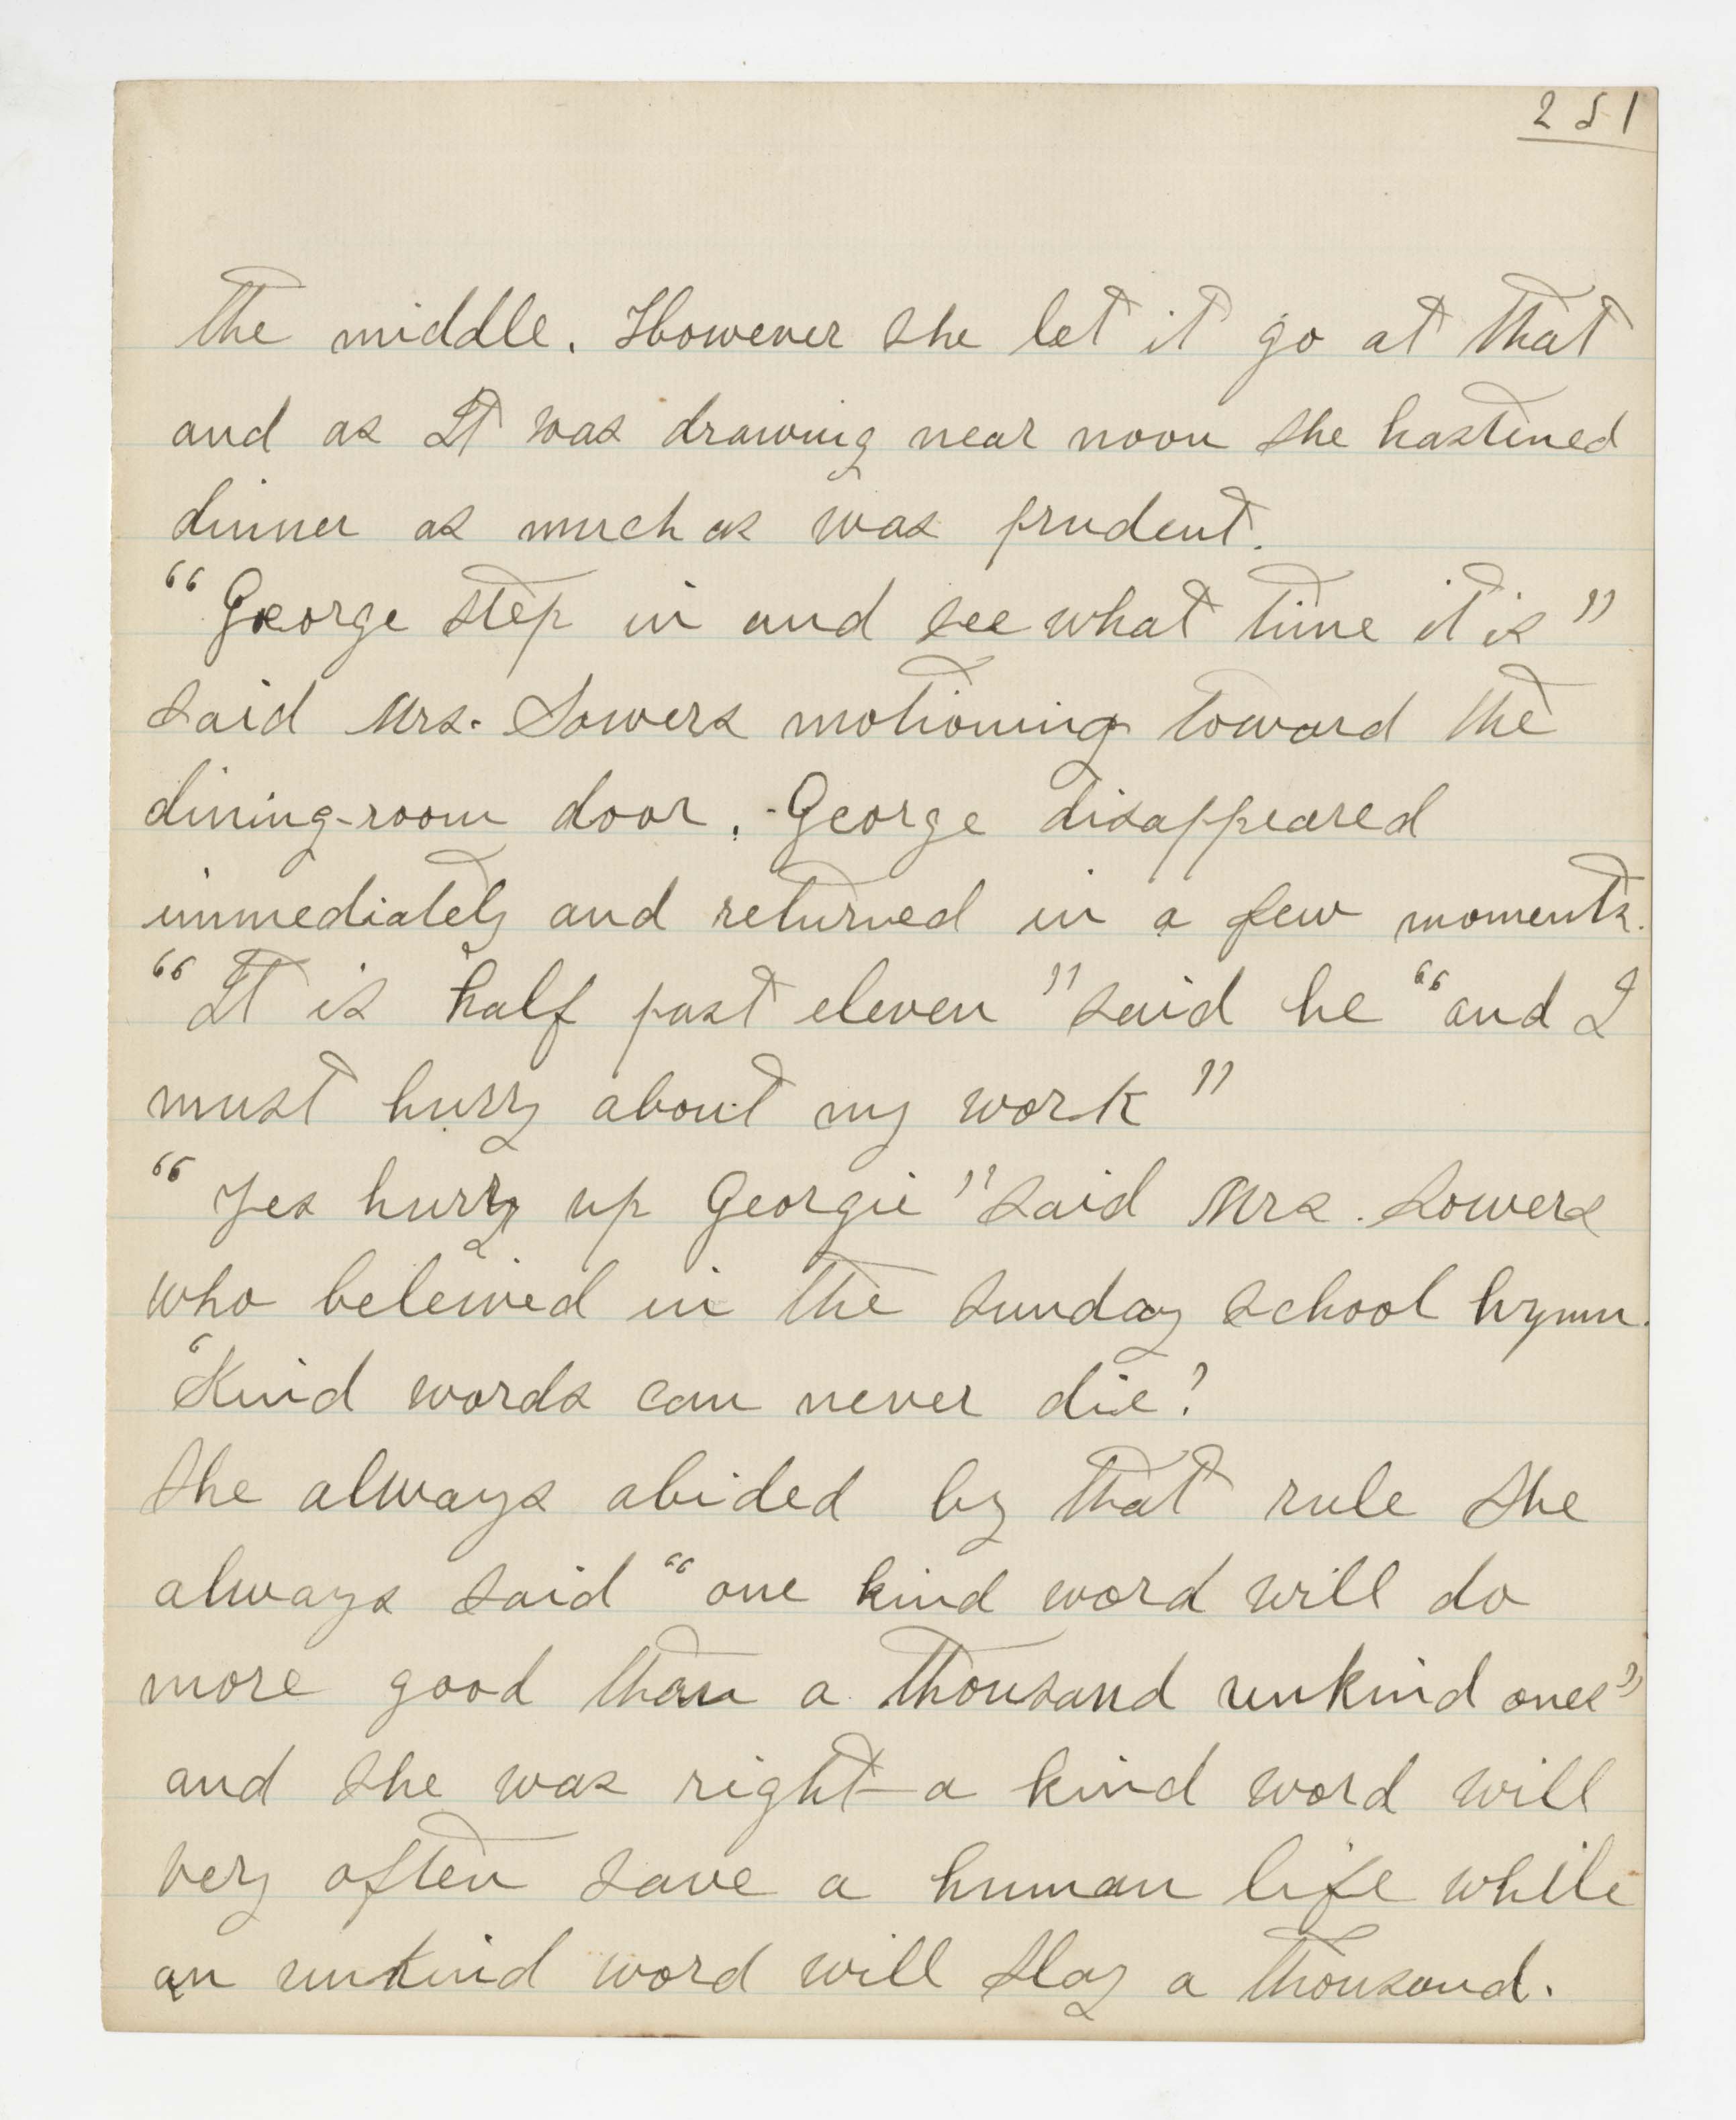 251
the middle. However she let it go at that
and as It was drawing near noon she hastined
dinner as much as was prudent.
"George step in and see what time it is"
said Mrs. Sowers motioning toward the
dining-room door. George disappeared
immediately and returned in a few moments.
"It is half past eleven" said he "and I
must hurry about my work"
"Yes hurry up Georgie" said Mrs. Sowers
who beleived in the Sunday school hymn.
'Kind words can never die.'
She always abided by that rule she
always said "one kind word will do
more good than a thousand unkind ones"
and she was right - a kind word will
very often save a human life while
an unkind word will slay a thousand.